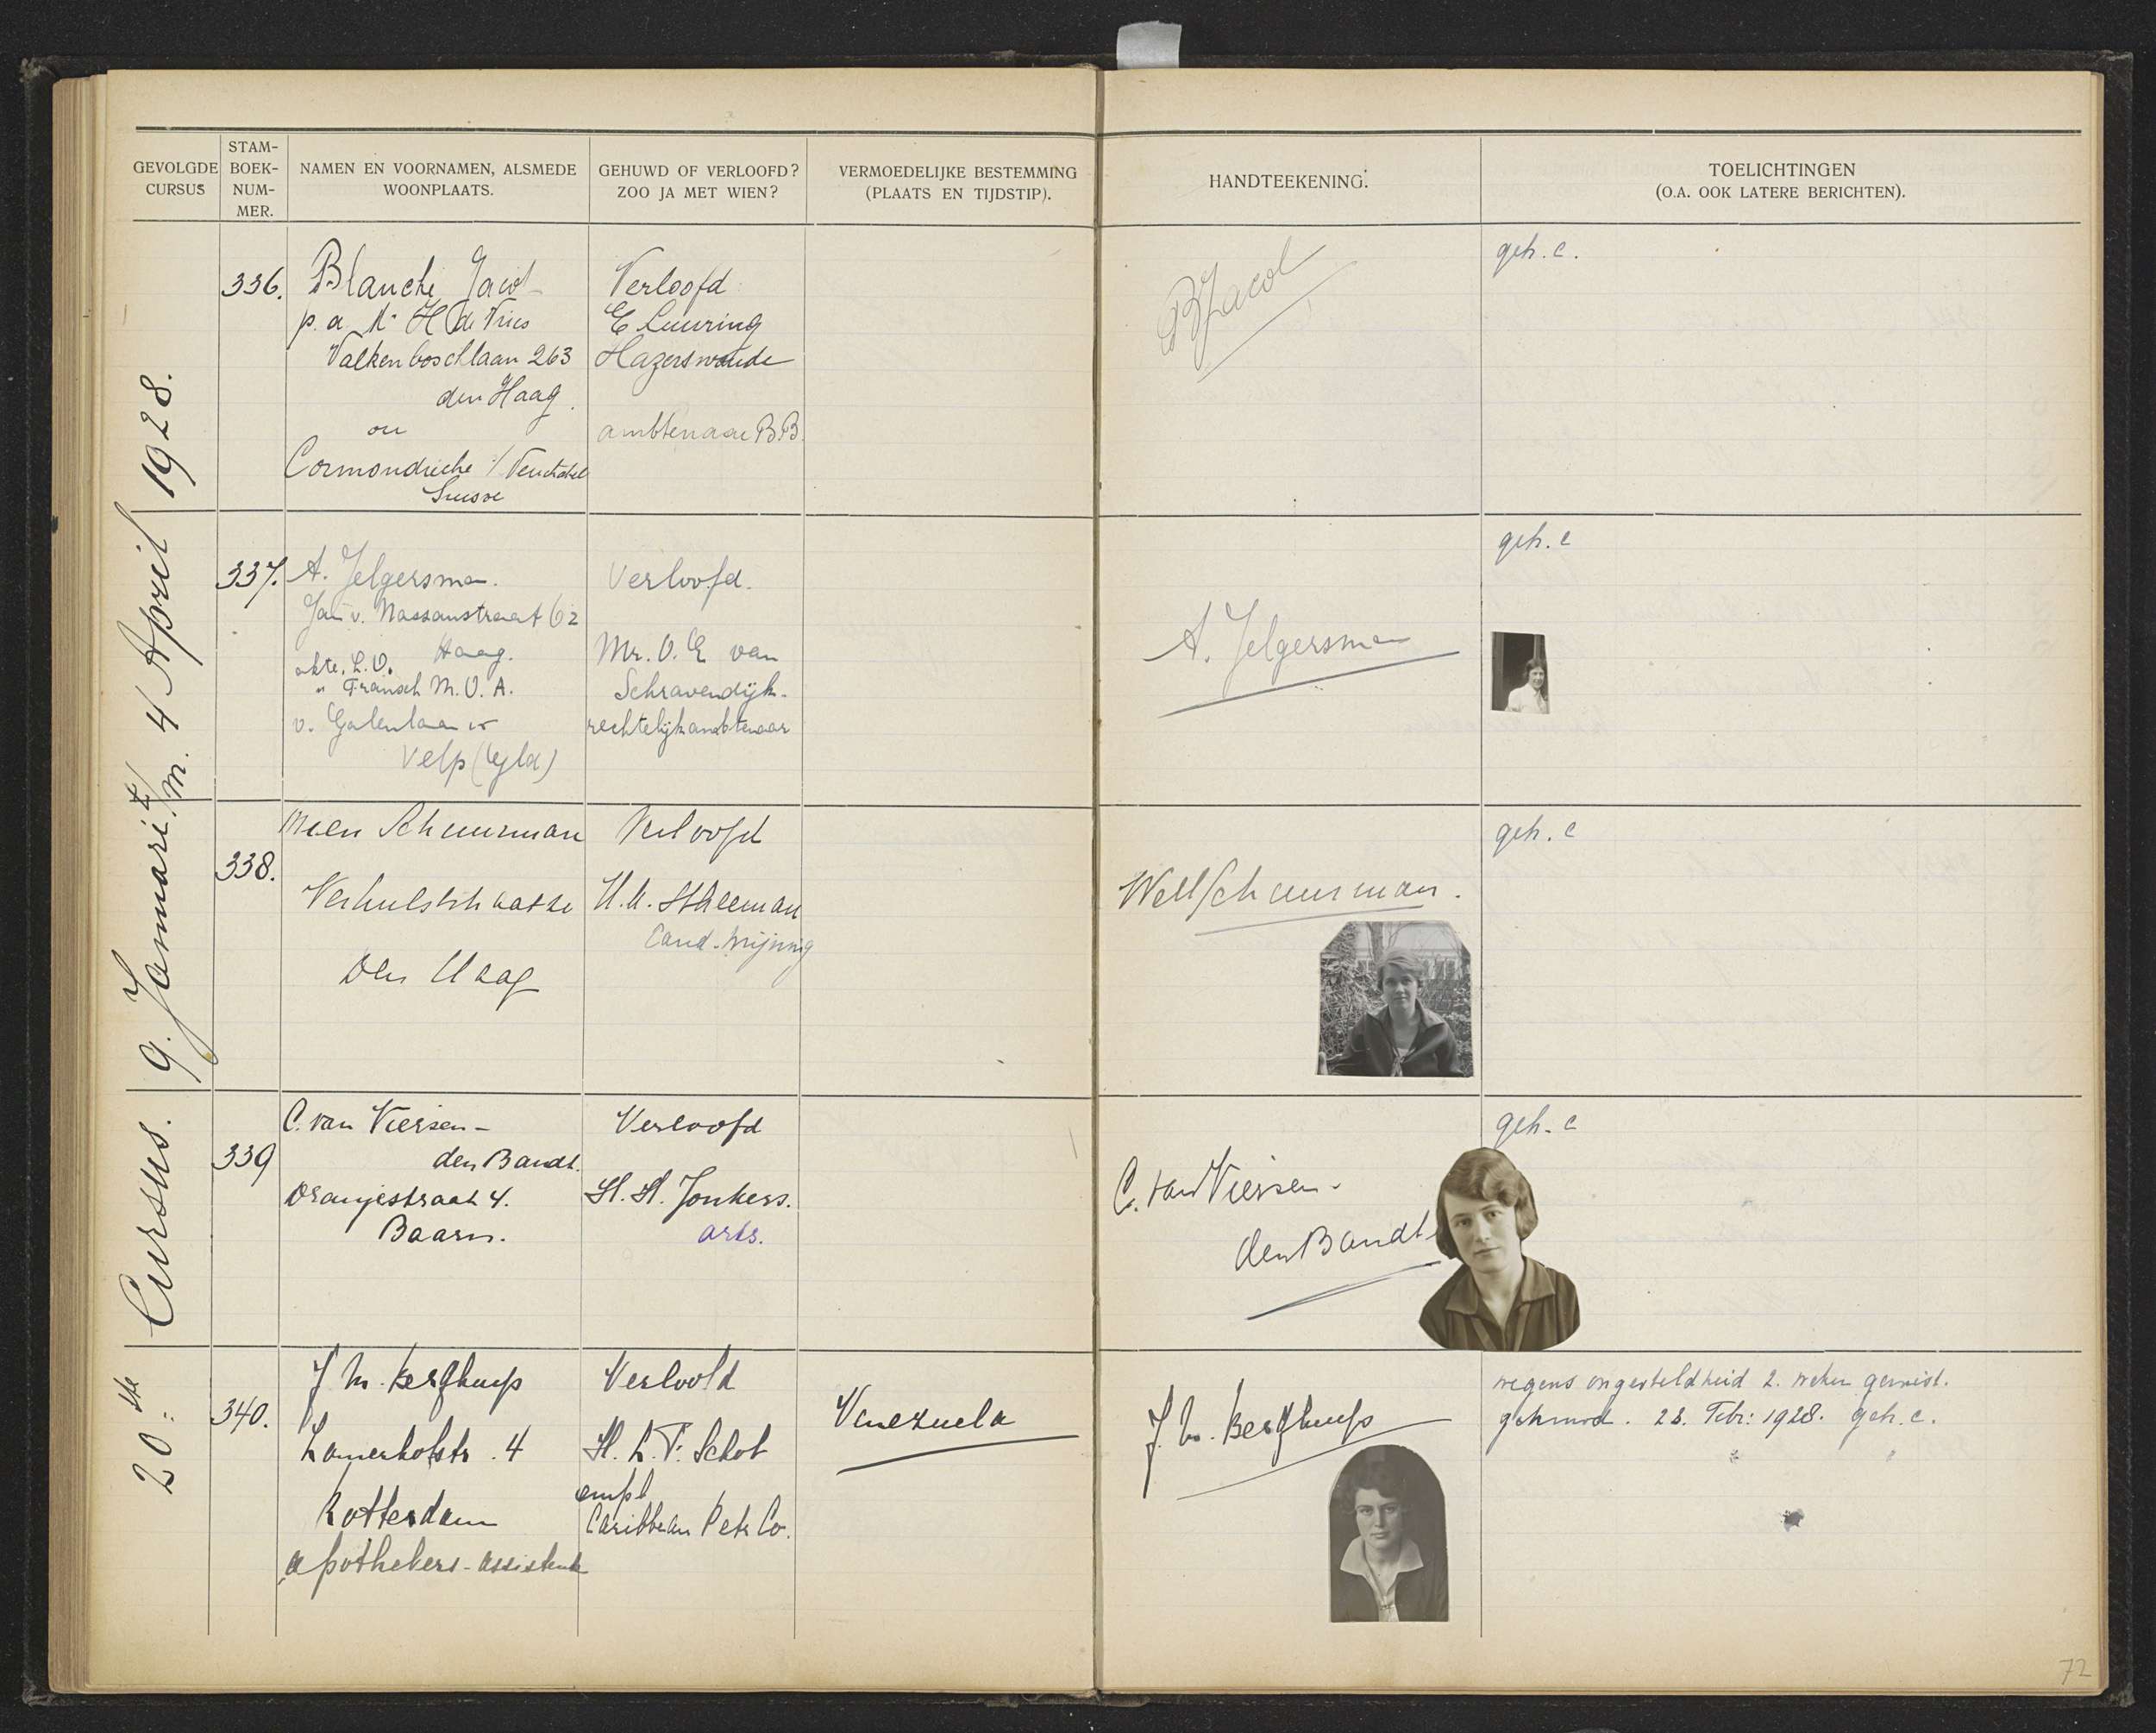 GEVOLGDE
CURSUS
STAM-
BOEK-
NUM-
MER.
NAMEN EN VOORNAMEN, ALSMEDE
WOONPLAATS.
GEHUWD OF VERLOOFD?
ZOO JA MET WIEN?
VERMOEDELIJKE BESTEMMING
(PLAATS EN TIJDSTIP).
HANDTEEKENING.
TOELICHTINGEN
(O.A. OOK LATERE BERICHTEN).
20ste Cursus. 9. Januari t/m. 4 April 1928.
336.
Blanche Jacot
p. a. Mr H de Vries
Valkenboschlaan 263
den Haag.
ou
Cormondrèche s/ Neuchatel
Suisse
Verloofd
E Luuring
Hazerswoude
ambtenaar B.B.
BJacot
geh. c.
337.
A. Jelgersma.
Jan v. Nassaustraat 62
Haag.
akte. L.O.
" Fransch M.O. A.
v. Galenlaan
Velp (Gld)
Verloofd.
Mr. O. E van
Schravendijk.
rechterlijk ambtenaar
A. Jelgersma
geh. c
338.
Wien Scheurman
Verhulststraat
Den Haag
Verloofd
H. U. Stheeman
Cand. mijning
Scheurman.
geh. c
339
C. van Viersen-
den Bandt.
Oranjestraat 4.
Baarn.
Verloofd
H. H. Jonkers.
arts.
C. van Viersen-
den Bandt
geh. c
340.
J M. Berghuys
4
Rotterdam
apothekers-assistente
Verloofd
H. L. F. Schot
empl
Caribbean Petr Co.
Venezuela
J. M. Berghuys
wegens ongesteldheid 2. weken gemist.
28. Febr: 1928. geh. c.
72